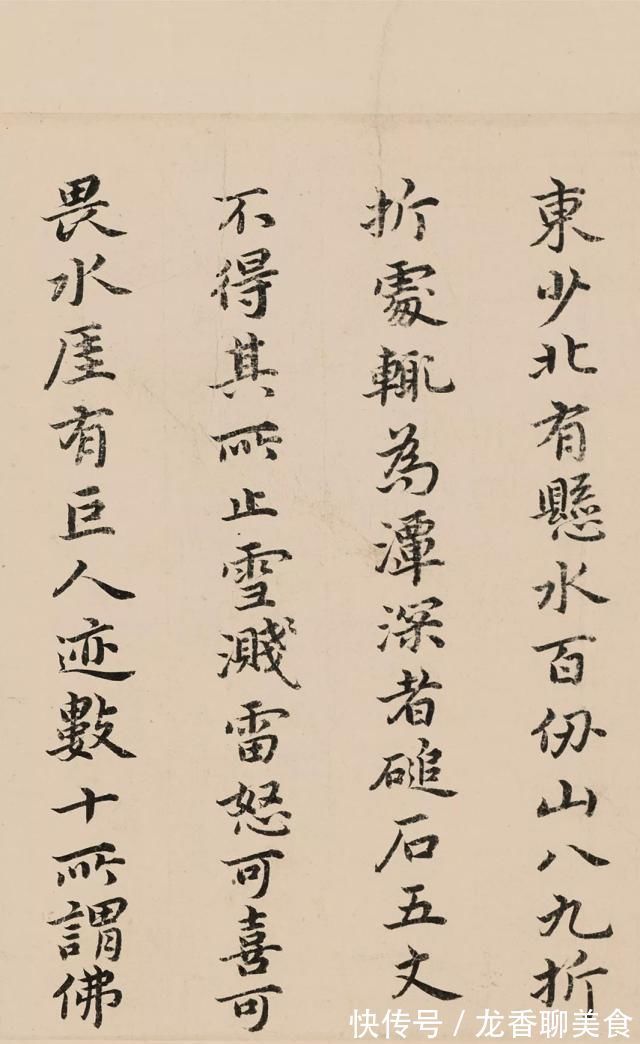 東少北有懸水百仞山八九折
折處輒為潭深者磓石五丈
不得其所止雪濺雷怒可喜可
畏水厓有巨人迹數十所謂佛
快传号/龙香聊美食